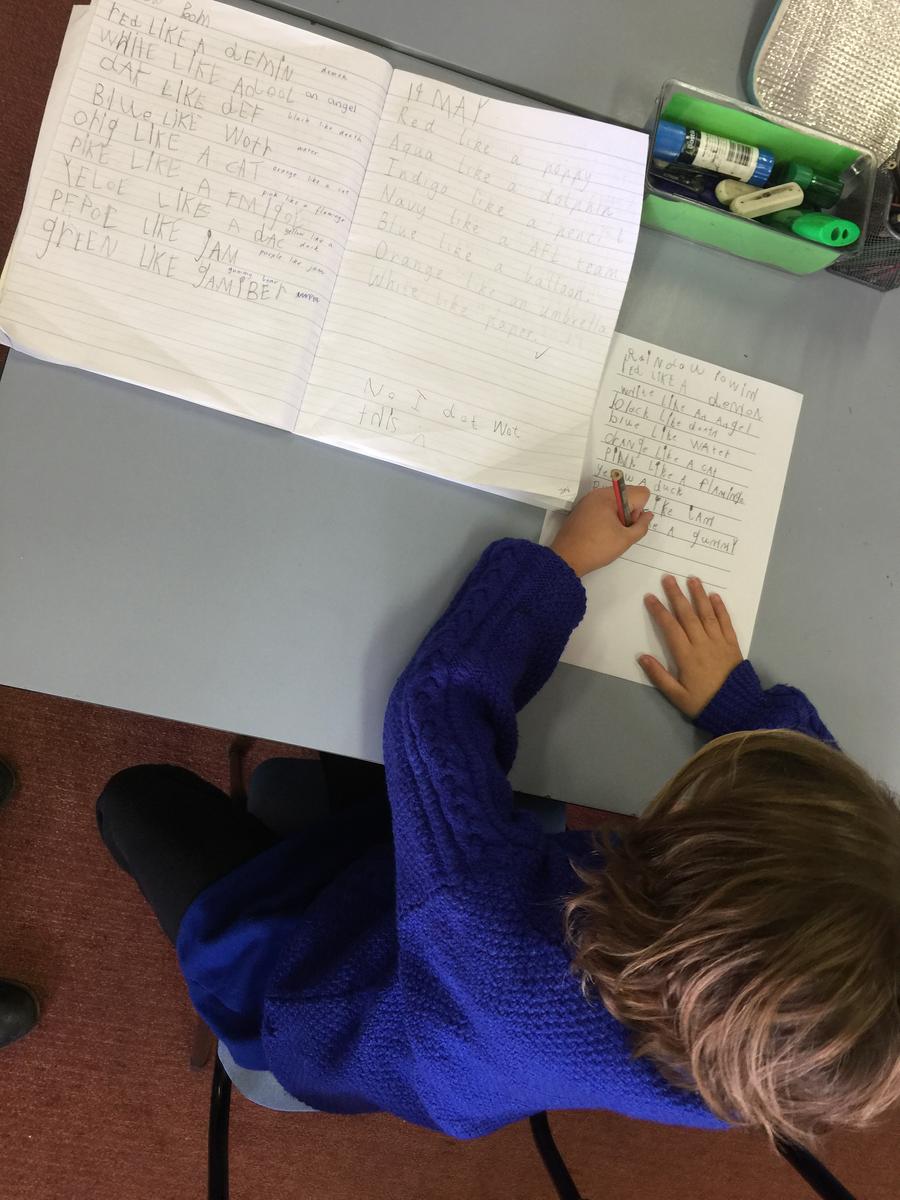 Bom
red LIKE A dEMIN demon
WHITE LIKE AdOOL an angel
dAF LIKE dEF black like death
BLUe LIKE WOTT water
oHig LIKE A CAT orange like a cat
PIKE LIKE A FMIgOE pink like a flamingo
YELOE LIKE A dAC yellow like a duck
PEPOE LIKE JAM purple like jam
gummy bear
gREEN LIKE gAMIBET
14 MAY
Red like a poppy
Aqua like a dolphin
Indigo like a pencil
Navy like a AFL team
Blue like a balloon.
Orange like an umbrella
White like paper.
No I dot Wot
this
RaiNdow Powim
red LIKE A demon
white Like An Angel
black Like death
blue Like WAter
orange Like A CAt
Pink Like A flAmingo
A duck
Like jAM
A gummy